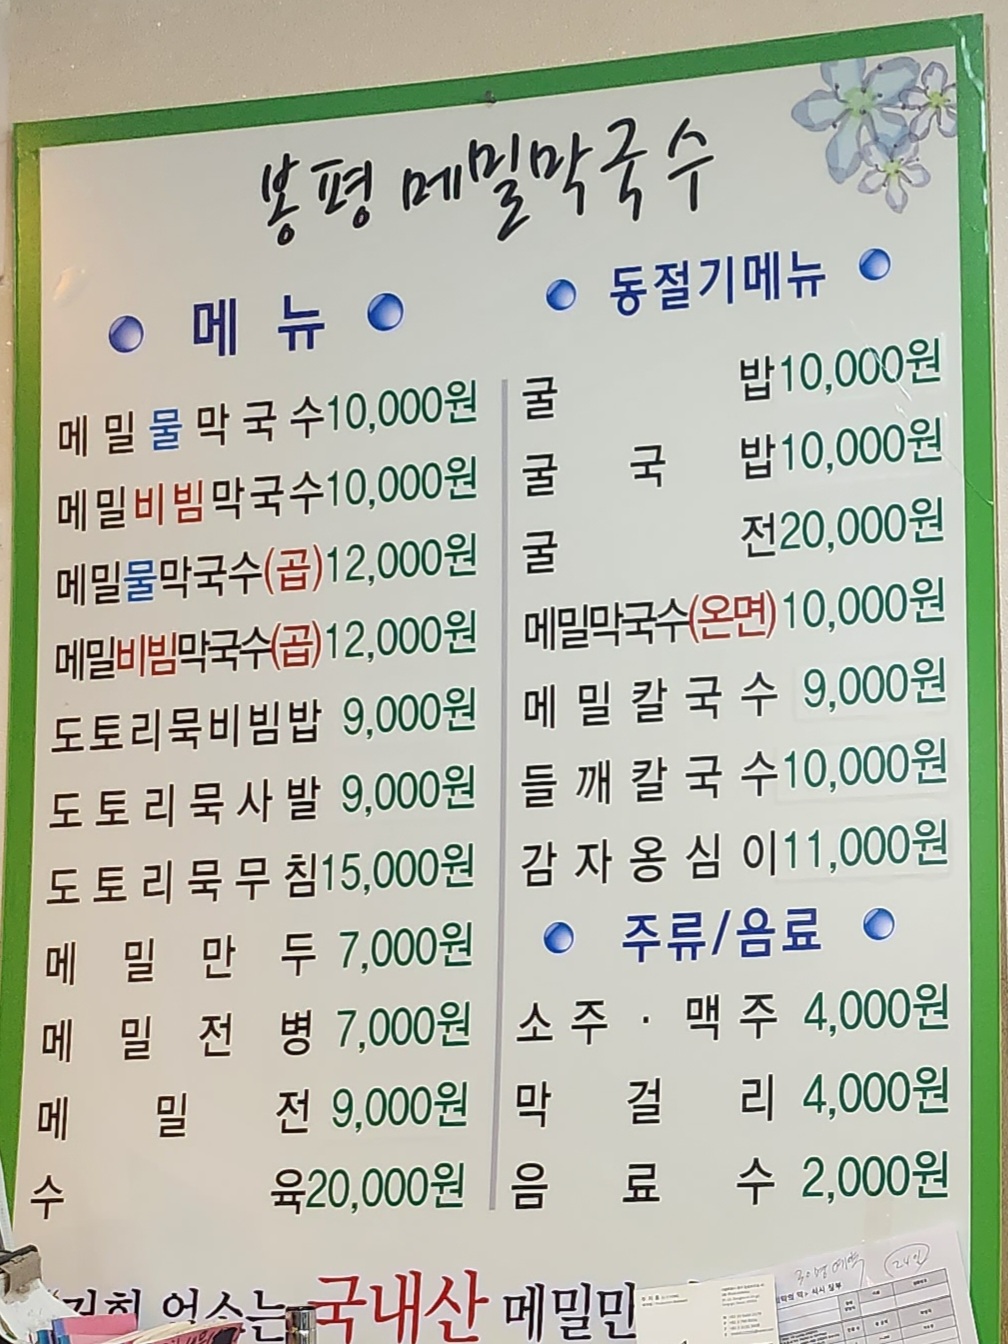 봉평 메밀막국수
메뉴
메밀물막국수 10,000원
메밀비빔막국수 10,000원
메밀물막국수(곱) 12,000원
메밀비빔막국수(곱) 12,000원
도토리묵비빔밥 9,000원
도토리묵사발 9,000원
도토리묵무침 15,000원
메밀만두 7,000원
메밀전병 7,000원
메밀전 9,000원
수육 20,000원
동절기메뉴
굴밥 10,000원
굴국밥 10,000원
굴전 20,000원
메밀막국수(온면) 10,000원
메밀칼국수 9,000원
들깨칼국수 10,000원
감자옹심이 11,000원
주류/음료
소주·맥주 4,000원
막걸리 4,000원
음료수 2,000원
없소는 국내산 메밀만